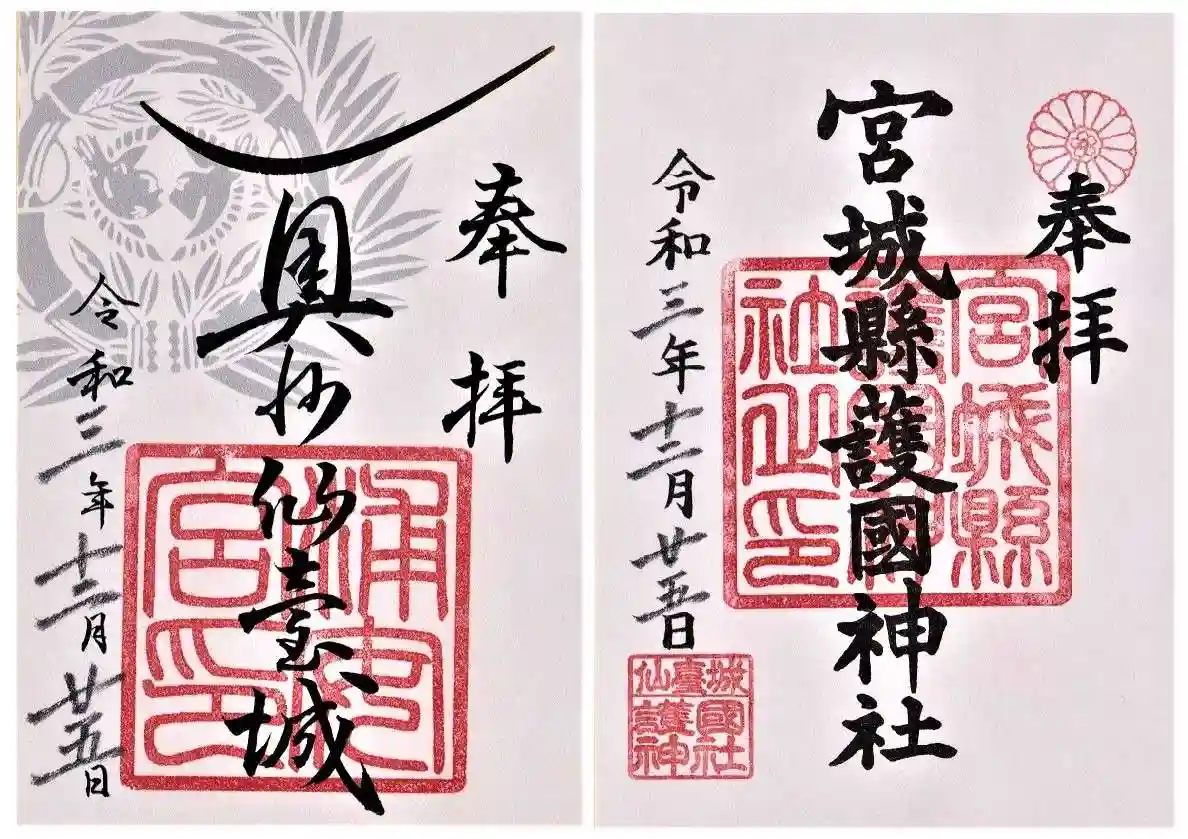 奉拝
奥州仙臺城
令和三年十二月廿五日
浦安
宮印
奉拝
宮城縣護國神社
令和三年十二月廿五日
宮城縣
護國神
社之印
仙臺城
護國
神社